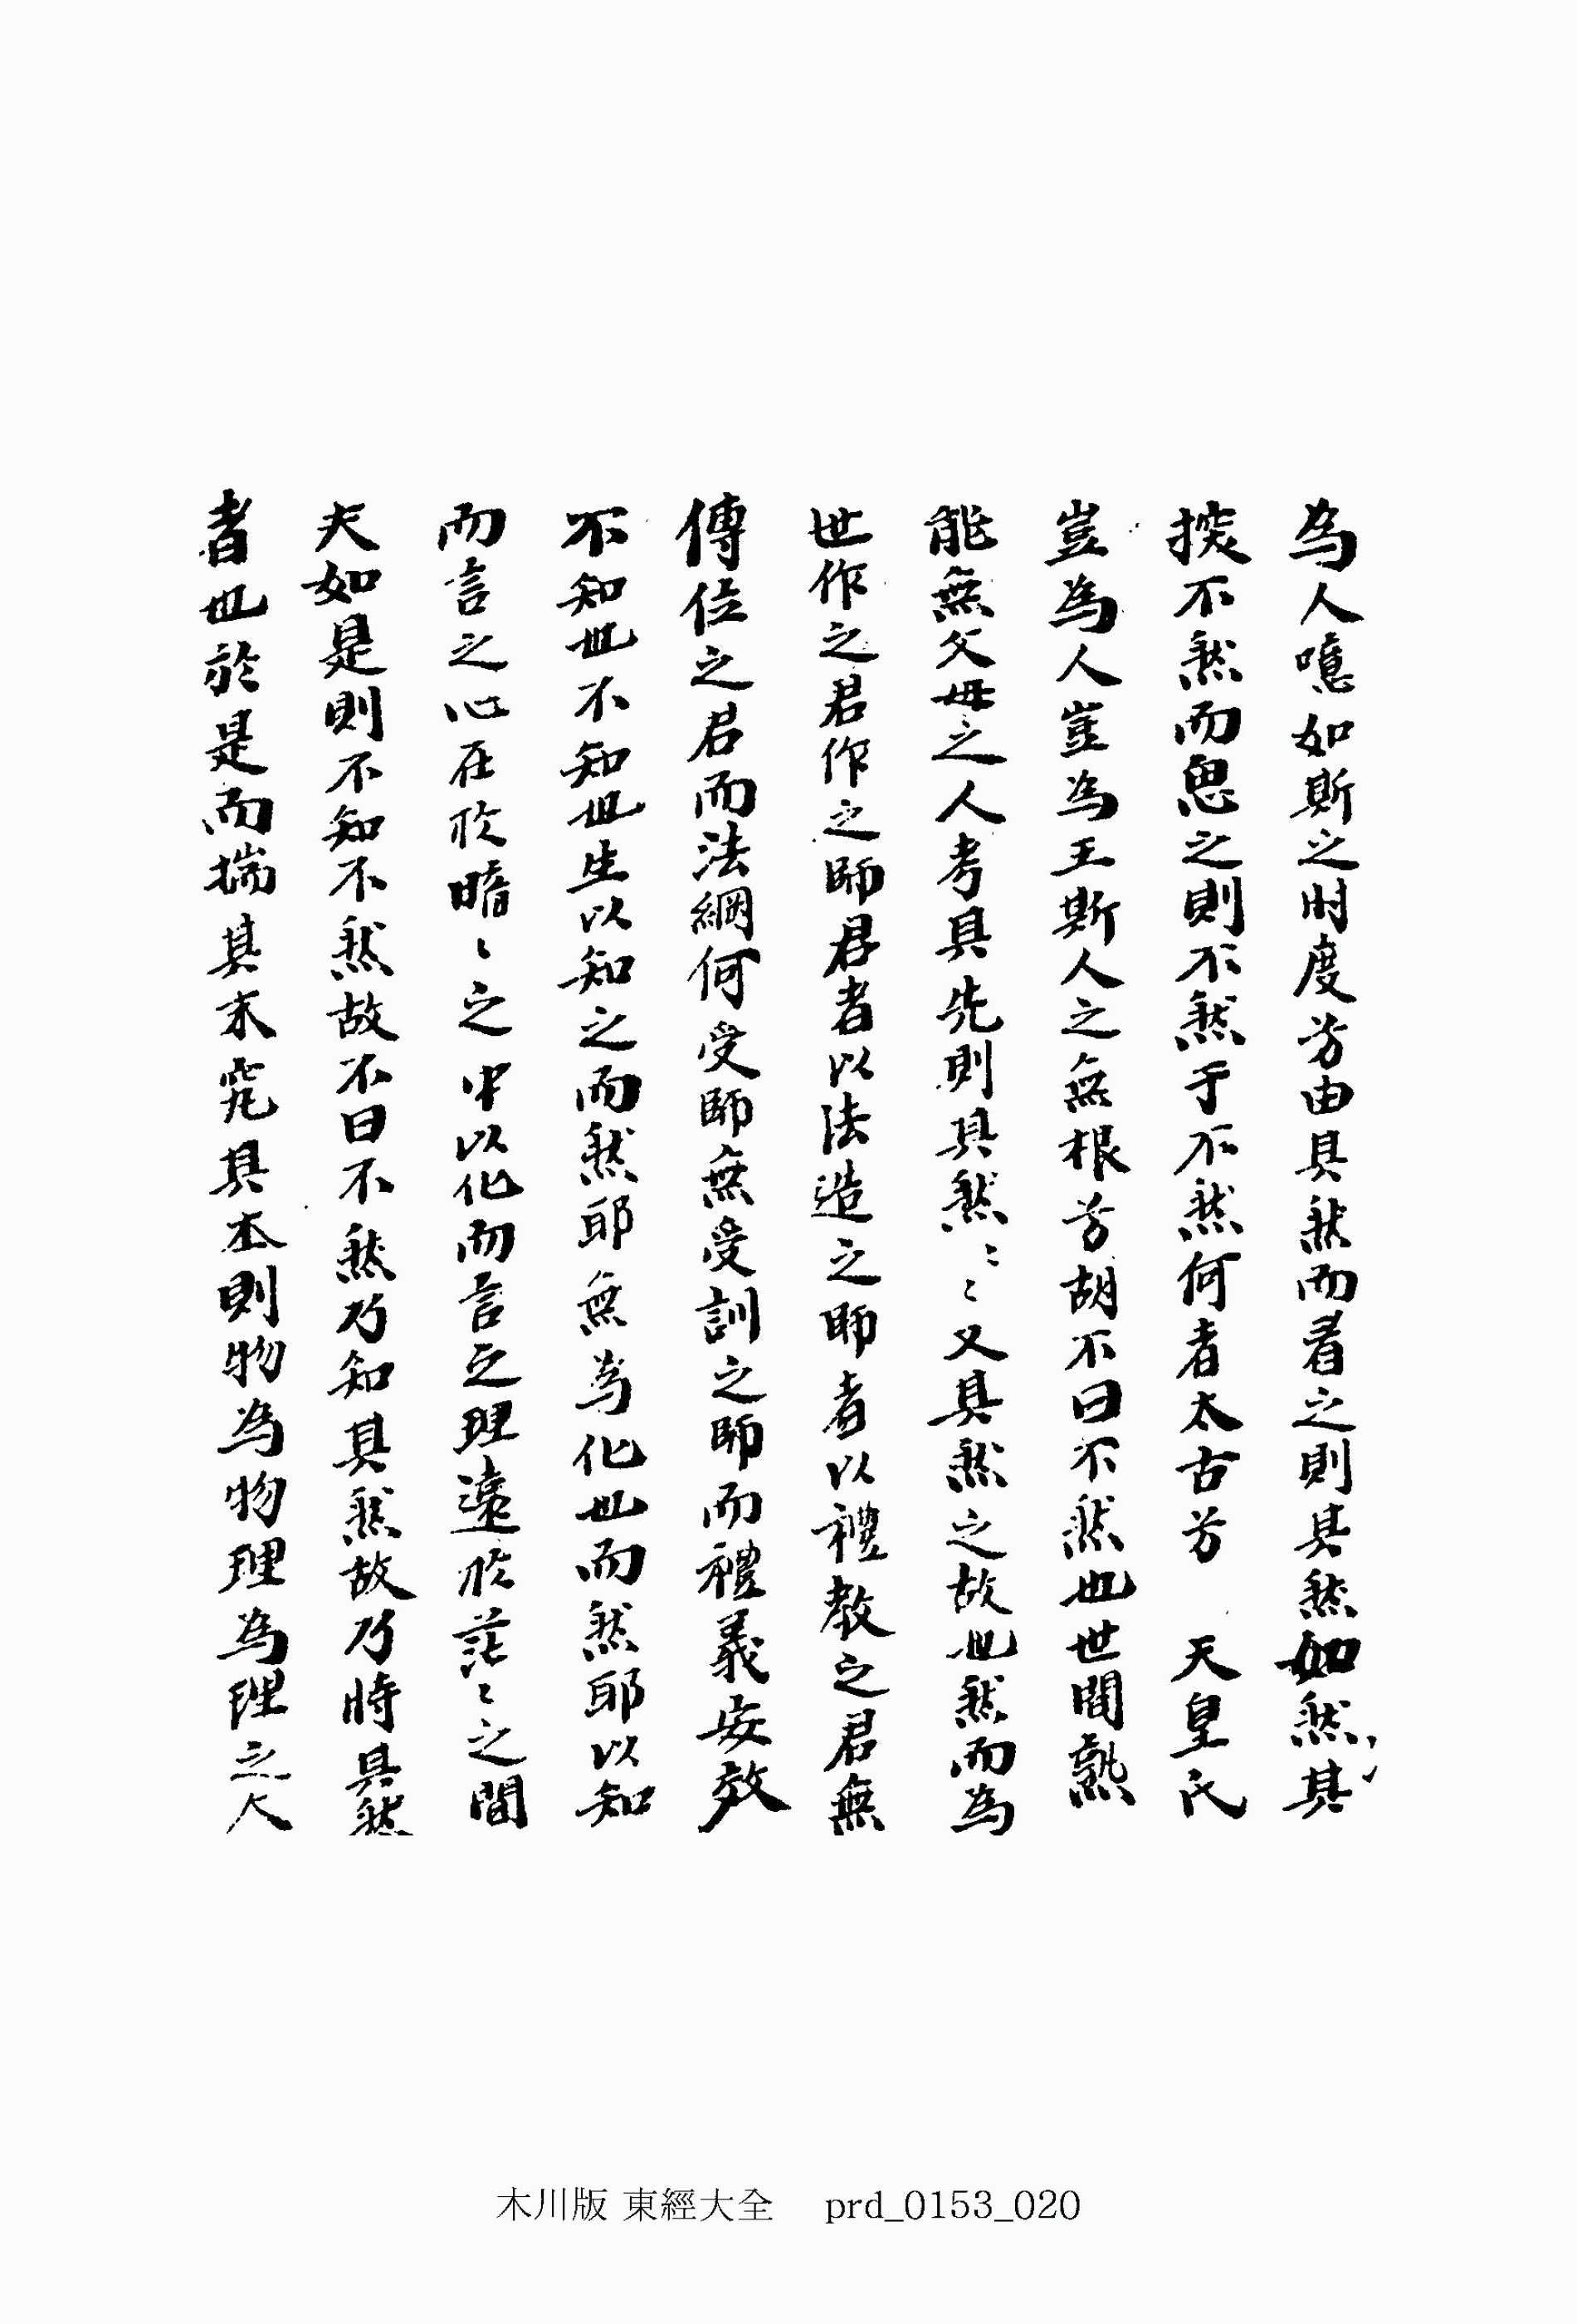 為人噫如斯之时度兮由其然而看之則其然如然其
探不然而思之則不然于不然何者太古兮 天皇氏
豈為人豈為王斯人之無根兮胡不曰不然也世間孰
能無父母之人考其先則其然〻〻又其然之故也然而為
世作之君作之師君者以法造之師者以禮教之君無
傳位之君而法綱何受師無受訓之師而禮義安效
不知也不知也生以知之而然耶無為化也而然耶以知
而言之心在於暗〻之中以化而言之理遠於茫〻之間
夫如是則不知不然故不曰不然乃知其然故乃恃其然
者也於是而揣其末究其本則物為物理為理之大
木川版 東經大全 prd_0153_020